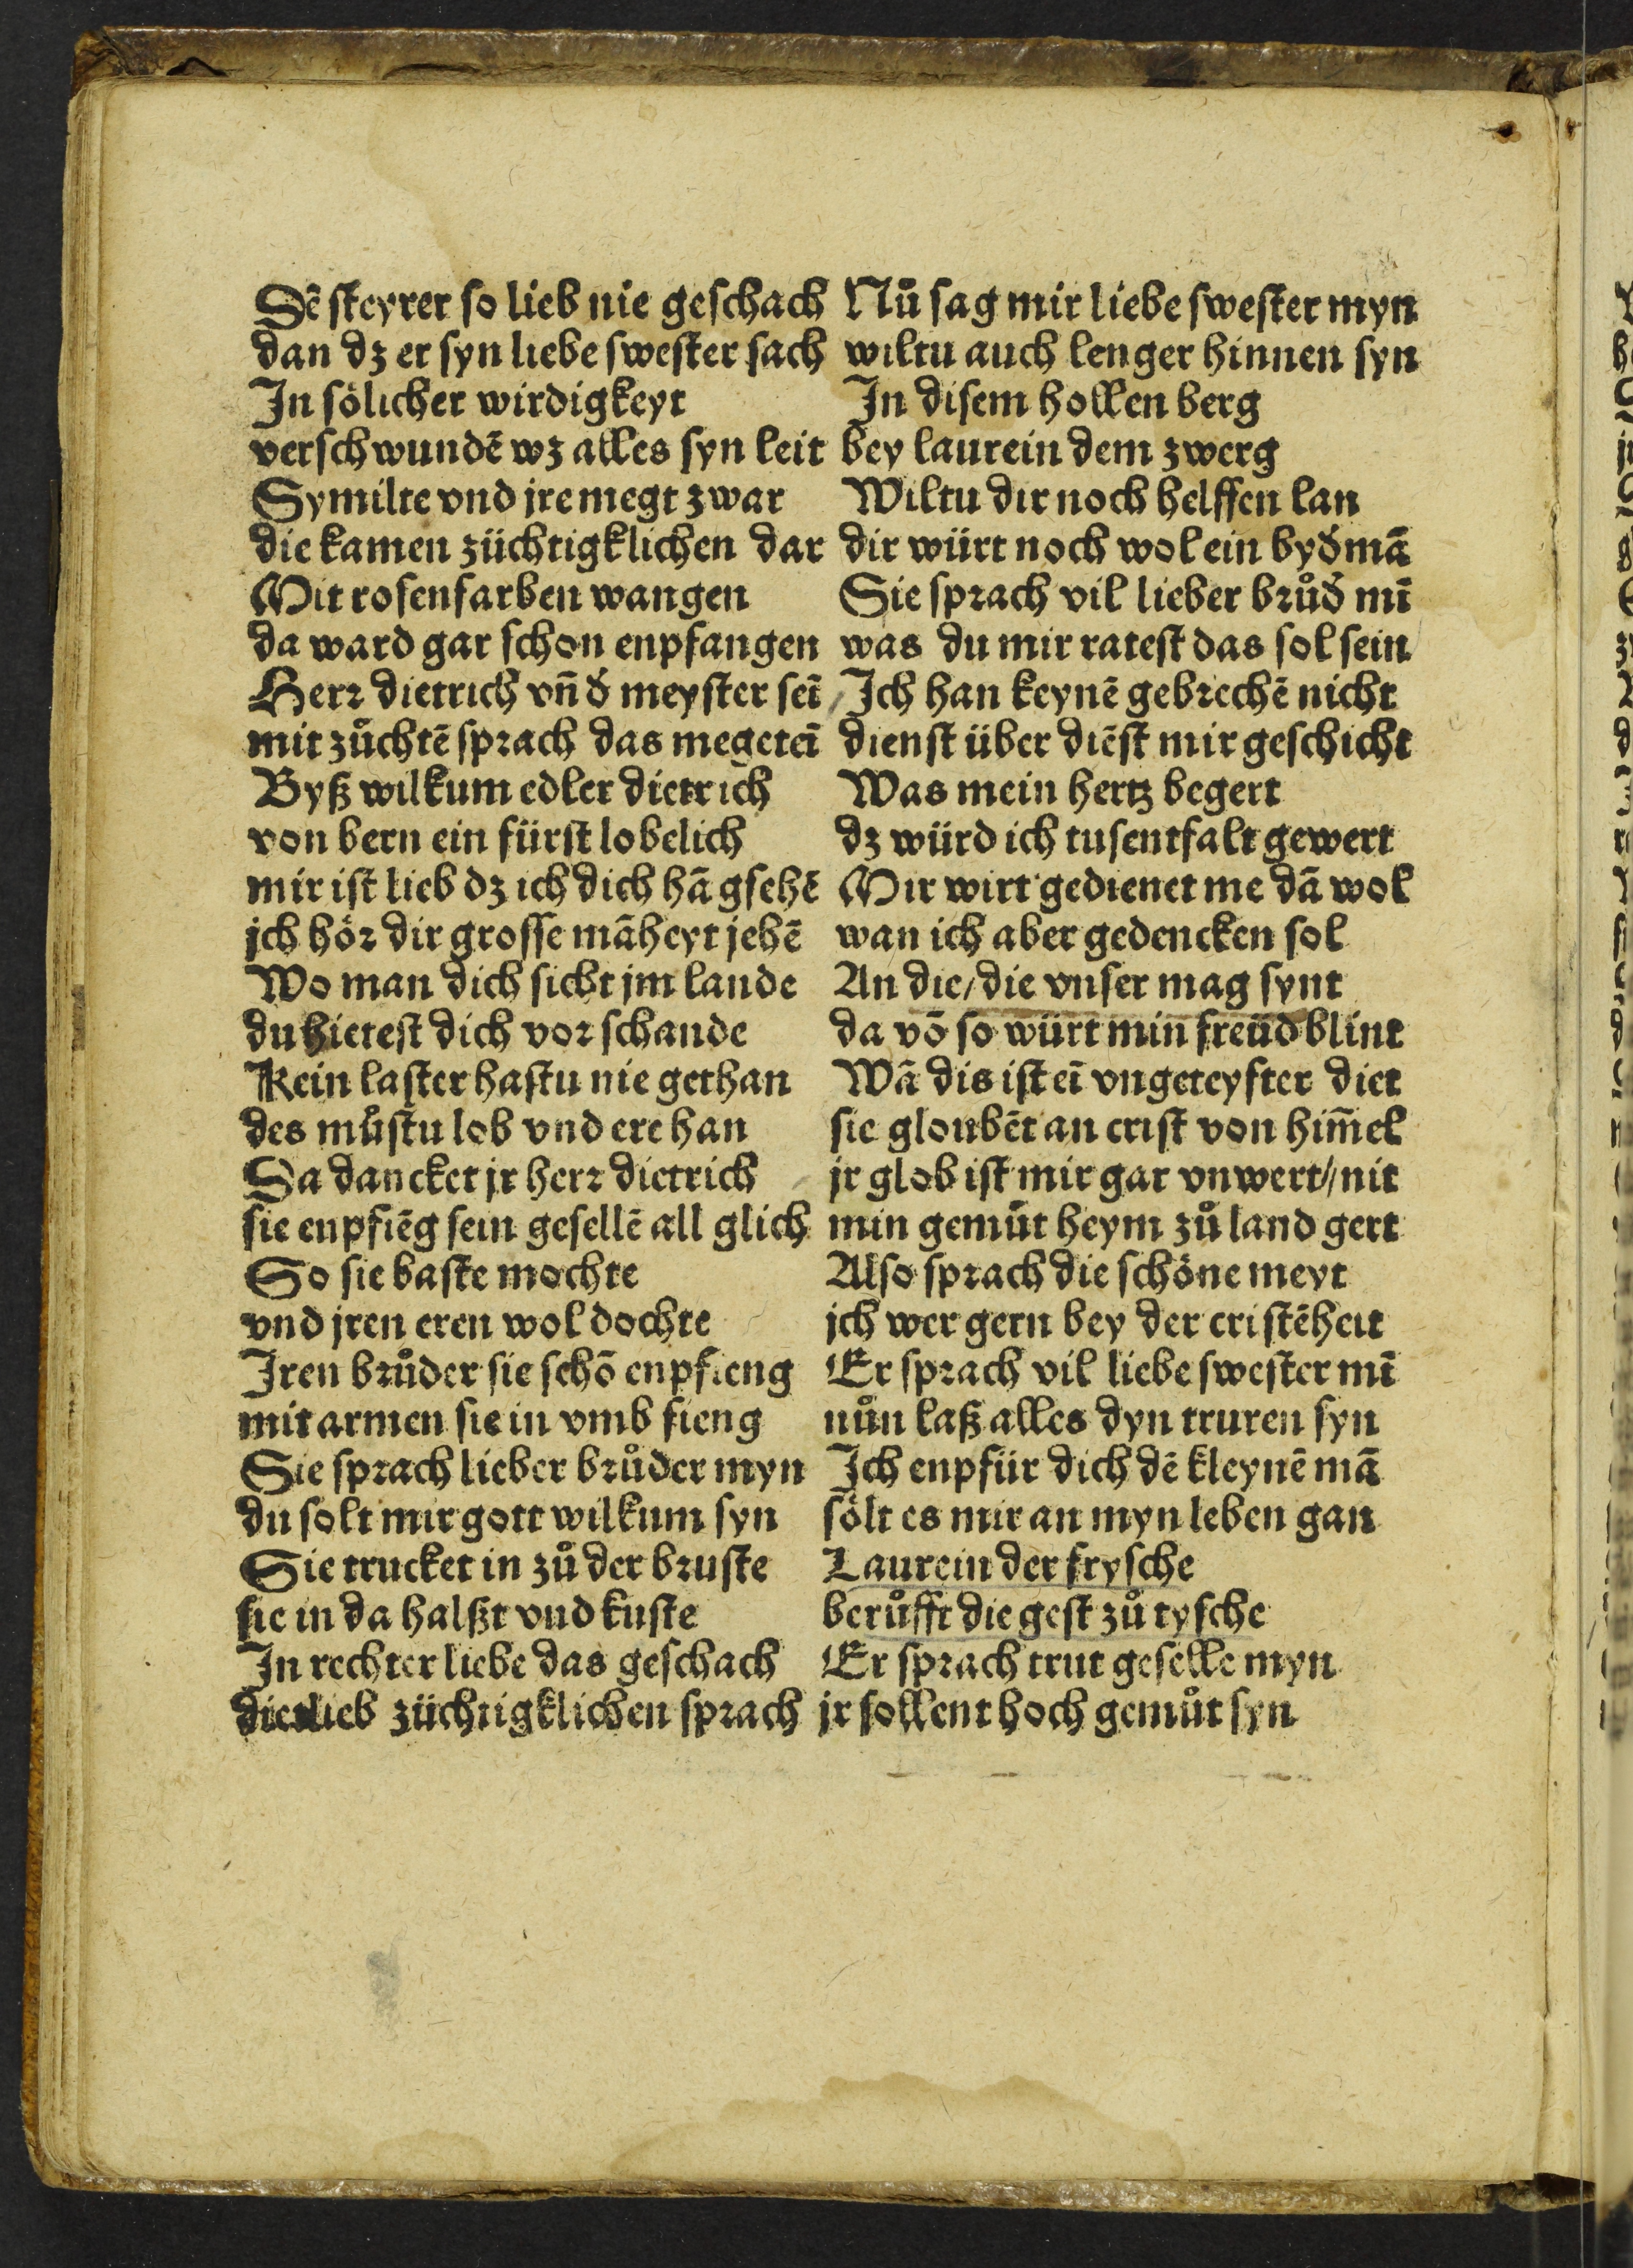 Dē steyrer so lieb nie geschach
dan dz er syn liebe swester sach
In sölicher wirdigkeyt
verschwundē wz alles syn leit
Symilte vnd jre megt zwar
die kamen züchtigklichen dar
Mit rosenfarben wangen
da ward gar schon enpfangen
Herr dietrich vn̄ d̕ meyster seī
mit zůchtē sprach das megeteī
Byß wilkum edler dietrich
von bern ein fürst lobelich
mir ist lieb dz ich dich hā gsehē
jch hör dir grosse māheyt jehē
Wo man dich sicht jm lande
du hietest dich vor schande
Kein laster hastu nie gethan
des můstu lob vnd ere han
Da dancket jr herr dietrich
sie enpfiēg sein gesellē all glich
So sie baste mochte
vnd jren eren wol dochte
Iren brůder sie schō enpfieng
mit armen sie in vmb fieng
Sie sprach lieber brůder myn
du solt mir gott wilkum syn
Sie trucket in zů der bruste
sie in da halßt vnd kuste
In rechter liebe das geschach
dietlieb züchtigklichen sprach
Nů sag mir liebe swester myn
wiltu auch lenger hinnen syn
In disem hollen berg
bey laurein dem zwerg
Wiltu dir noch helffen lan
dir würt noch wol ein byd̕mā
Sie sprach vil lieber brůd̕ mī
was du mir ratest das sol sein
Ich han keynē gebrechē nicht
dienst über diēst mir geschicht
Was mein hertz begert
dz würd ich tusentfalt gewert
Mir wirt gedienet me dā wol
wan ich aber gedencken sol
An die/die vnser mag synt
da vō so würt min freüd blint
Wā dis ist eī vngeteyfter diet
sie gloubēt an crist von him̄el
jr glob ist mir gar vnwert//nit
min gemůt heym zů land gert
Also sprach die schöne meyt
jch wer gern bey der cristēheit
Er sprach vil liebe swester mī
nůn laß alles dyn truren syn
Ich enpfür dich dē kleynē mā
sölt es mir an myn leben gan
Laurein der frysche
berůfft die gest zů tysche
Er sprach trut geselle myn
jr sollent hoch gemůt syn